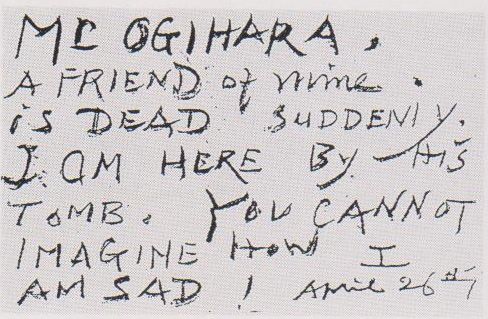 Mr OGIHARA,
A FRIEND of mine.
is DEAD SUDDENLY.
I AM HERE By HIS
TOMB. YOU CANNOT
IMAGINE HOW I
AM SAD! April 26th